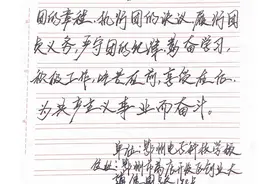 团的章程，执行团的决议，履行团
员义务，严守团的纪律，勤奋学习，
积极工作，吃苦在前，享受在后，
为共产主义事业而奋斗。
单位：鄂州电子科技学校
住址：鄂州市